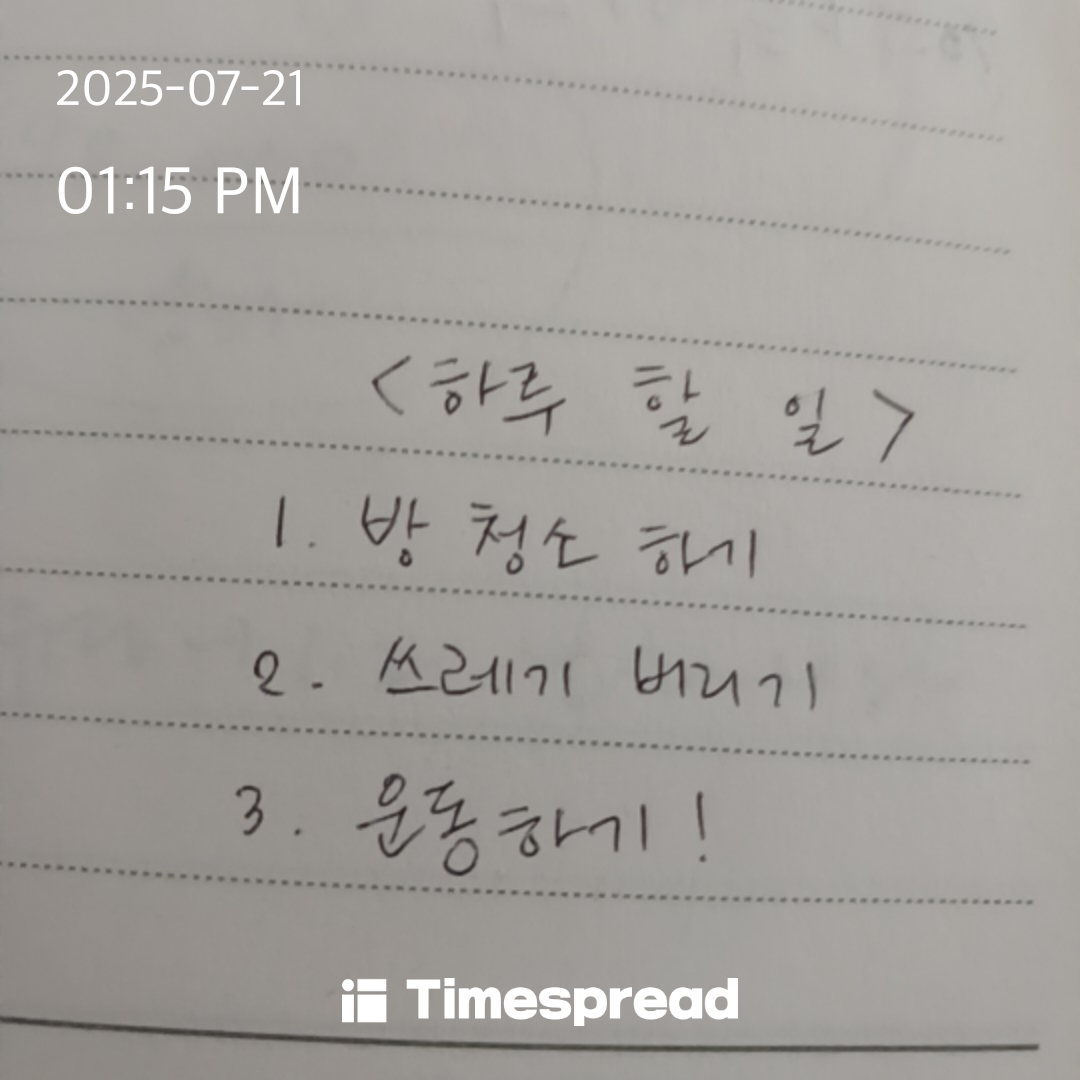 2025-07-21
01:15 PM
<하루 할 일>
1. 방 청소 하기
2. 쓰레기 버리기
3. 운동하기!
Timespread